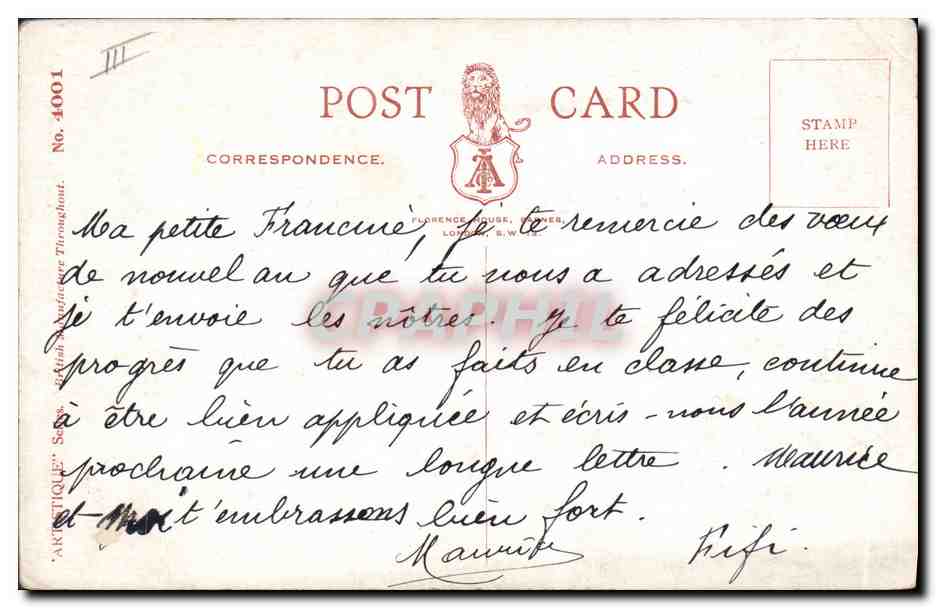 III
POST CARD
CORRESPONDENCE.
ADDRESS.
STAMP
HERE
FLORENCE HOUSE, BARNES,
LONDON, S.W. 13.
"ARTISTIQUE" Series. British Manufacture Throughout. No. 4001
Ma petite Francine, je te remercie des vœux
de nouvel an que tu nous a adressés et
je t'envoie les nôtres. Je te félicite des
progrès que tu as faits en classe, continue
à être bien appliquée et écris-nous l'année
prochaine une longue lettre. Maurice
et moi t'embrassons bien fort.
Maurice Fifi.
CPAPHIL